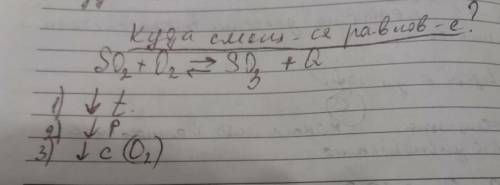 Куда смещ-ся равнов-е?
SO₂ + O₂ ⇄ SO₃ + Q
1) ↓ t.
2) ↓ P.
3) ↓ c (O₂)